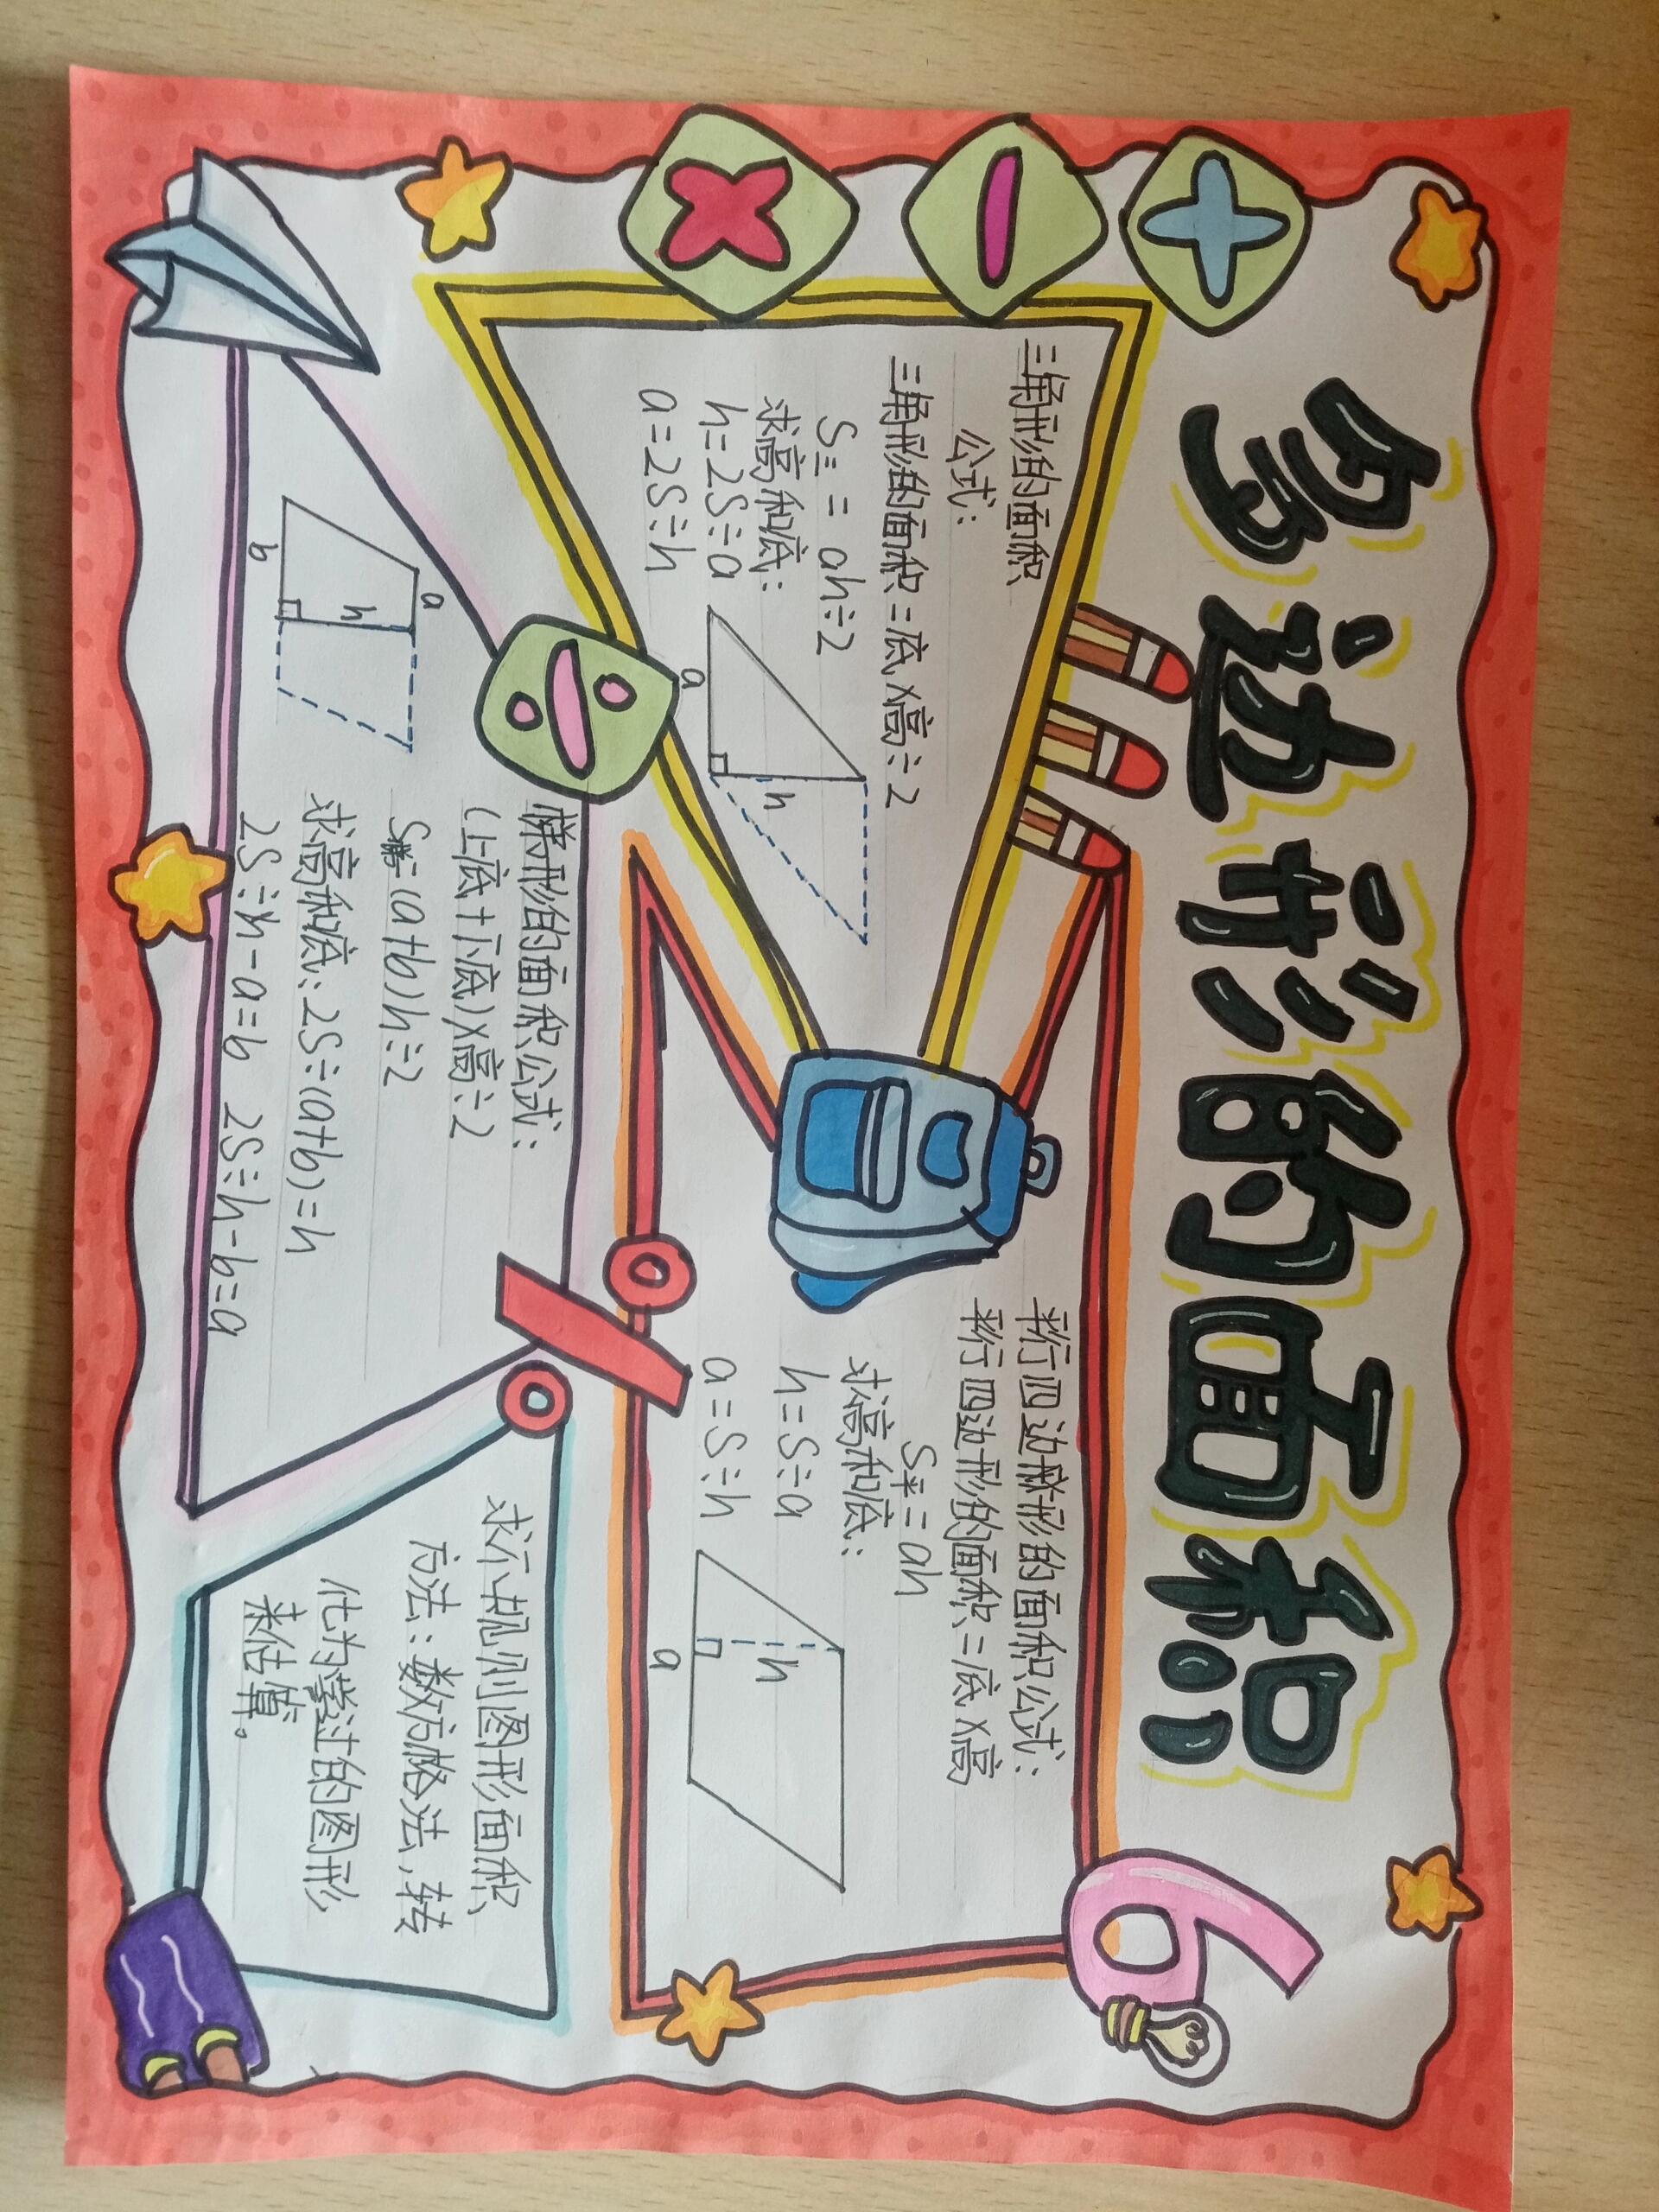 多边形的面积
三角形的面积
公式:
三角形的面积=底×高÷2
S三=ah÷2
求高和底:
h=2S÷a
a=2S÷h
a
h
平行四边形的面积公式:
平行四边形的面积=底×高
S平=ah
求高和底:
h=S÷a
a=S÷h
h
a
6
梯形的面积公式:
(上底+下底)×高÷2
S梯=(a+b)h÷2
求高和底:2S÷(a+b)=h
2S÷h-a=b 2S÷h-b=a
a
h
b
求不规则图形面积
方法:数方格法,转
化为学过的图形
来估算。